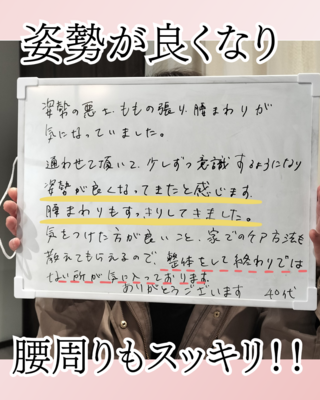 姿勢が良くなり
姿勢の悪さ、ももの張り、腰まわりが
気になっていました。
通わせて頂いて、少しずつ意識するようになり
姿勢が良くなってきたと感じます。
腰まわりもすっきりしてきました。
気をつけた方が良いこと、家でのケア方法も
教えてもらえるので、整体をして終わりでは
ない所が気に入っております。
ありがとうございます 40代
腰周りもスッキリ!!